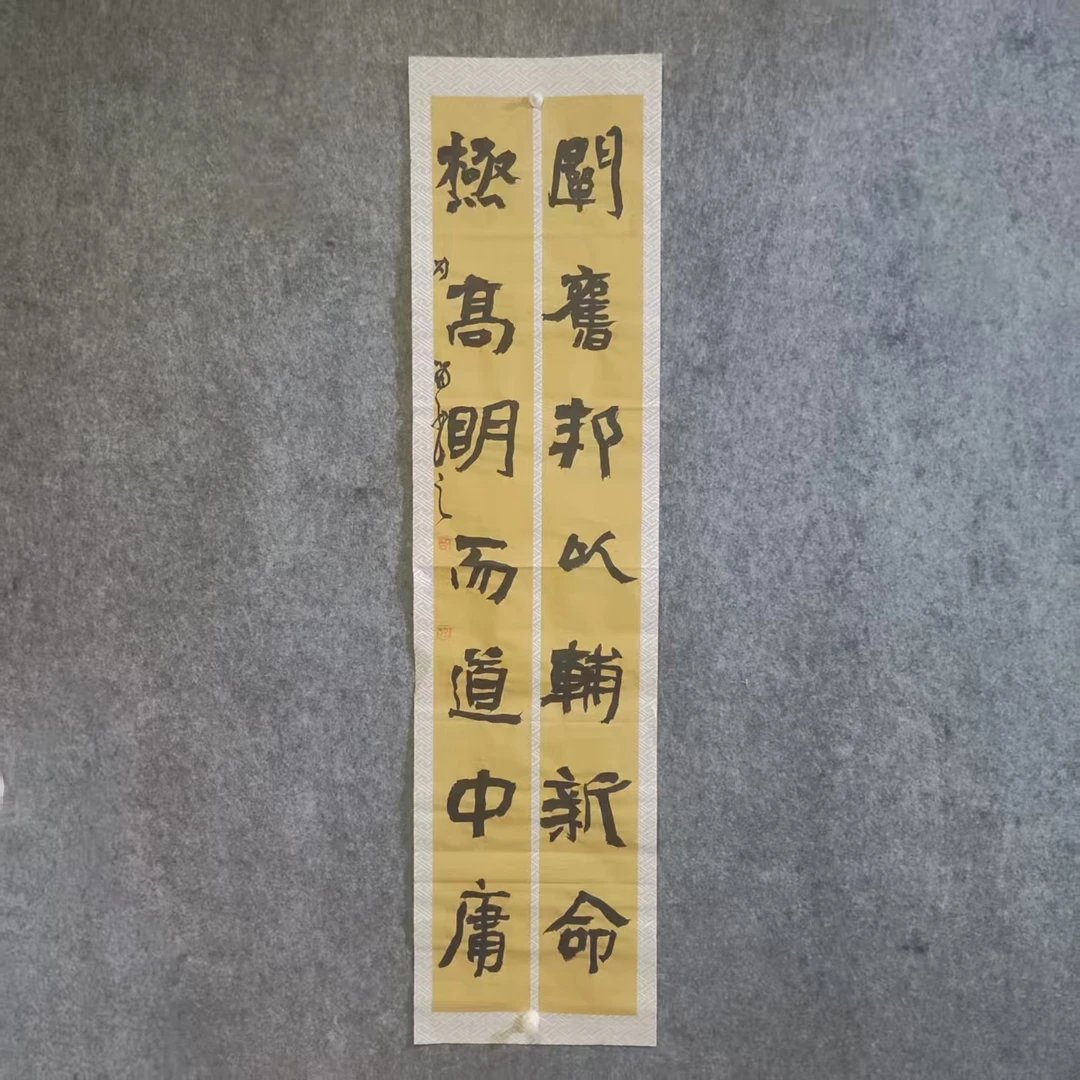 闡舊邦以輔新命
極高明而道中庸